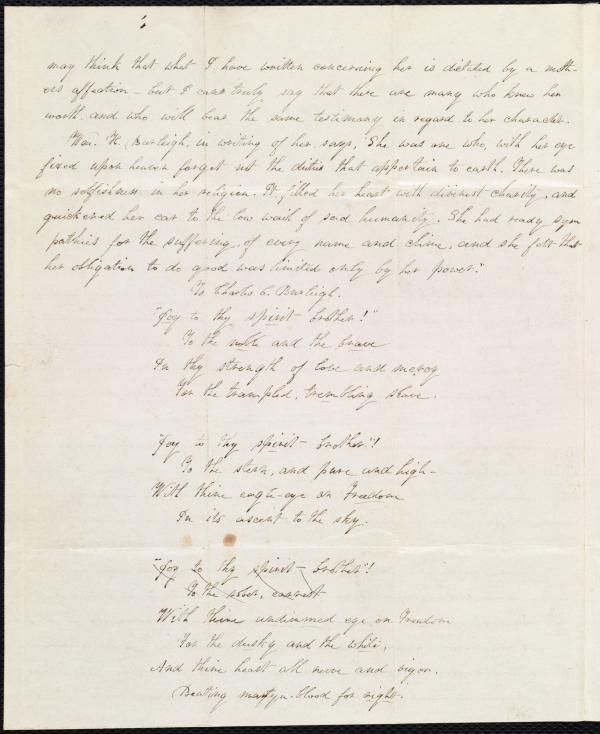 may think that what I have written concerning her is dictated by a moth-
ers affection - but I can truly say that there are many who knew her
worth, and who will bear the same testimony in regard to her character.
Wm. H. Burleigh, in writing of her, says, She was one who, with her eye
fixed upon heaven forgot not the duties that appertain to earth. There was
no selfishness in her religion. It filled her heart with divinest charity, and
quickened her ear to the low wail of sad humanity. She had ready sym
pathies for the suffering, of every name and clime, and she felt that
her obligation to do good was limited only by her power."
To Charles C. Burleigh.
"Joy to thy spirit - brother!"
To the noble and the brave
In thy strength of love and mercy
For the trampled, trembling slave.
"Joy to thy spirit - brother"!
To the stern, and pure and high -
With thine eagle-eye on Freedom
In its ascent to the sky.
"Joy to thy spirit - brother"!
To the sober, earnest
With thine undimmed eye on Freedom
For the dusky and the white,
And thine heart all nerve and vigor,
Beating martyr-blood for right.